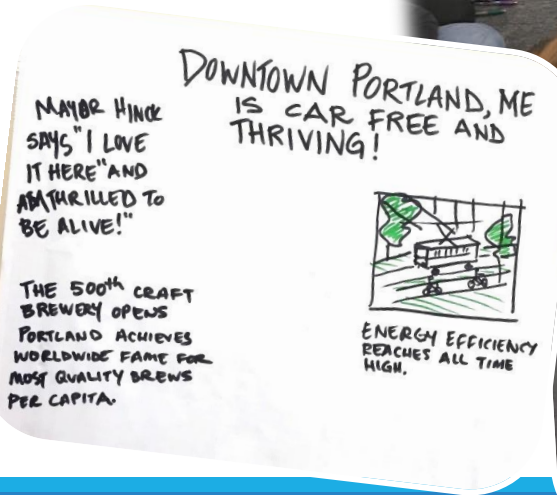 DOWNTOWN PORTLAND, ME
IS CAR FREE AND
THRIVING!
MAYOR HINCK
SAYS "I LOVE
IT HERE" AND
AM THRILLED TO
BE ALIVE!"
THE 500th CRAFT
BREWERY OPENS
PORTLAND ACHIEVES
WORLDWIDE FAME FOR
MOST QUALITY BREWS
PER CAPITA.
ENERGY EFFICIENCY
REACHES ALL TIME
HIGH.